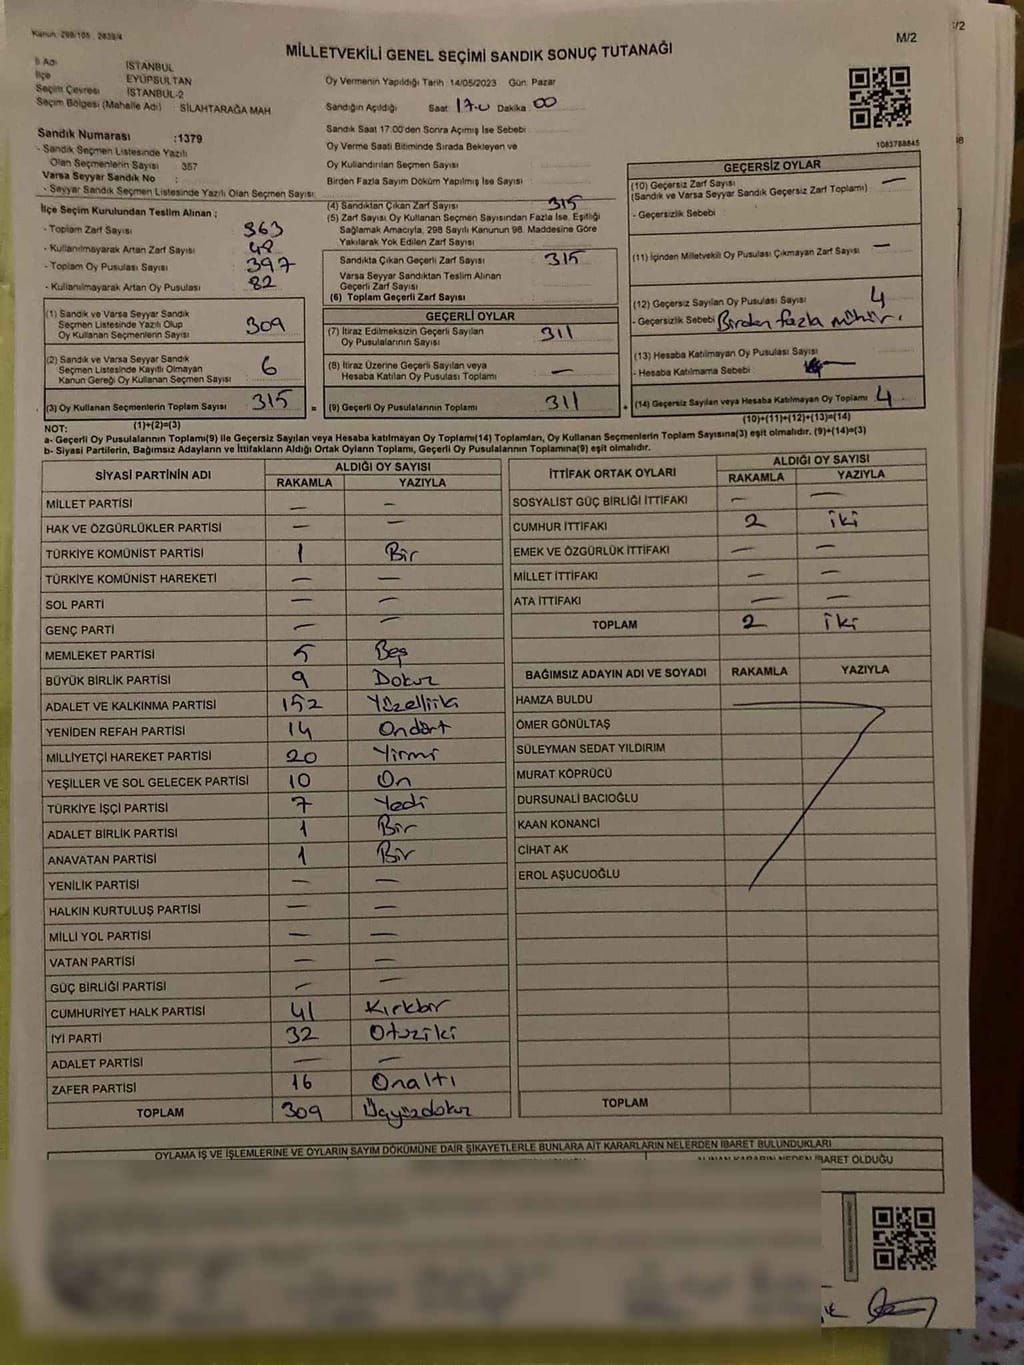 Kanun: 298/105 , 2839/4
M/2
MİLLETVEKİLİ GENEL SEÇİMİ SANDIK SONUÇ TUTANAĞI
İl Adı İSTANBUL
İlçe EYÜPSULTAN
Seçim Çevresi İSTANBUL-2
Seçim Bölgesi (Mahalle Adı) : SİLAHTARAĞA MAH
Sandık Numarası :1379
- Sandık Seçmen Listesinde Yazılı
Olan Seçmenlerin Sayısı : 357
Varsa Seyyar Sandık No :
- Seyyar Sandık Seçmen Listesinde Yazılı Olan Seçmen Sayısı:
Oy Vermenin Yapıldığı Tarih :14/05/2023 Gün: Pazar
Sandığın Açıldığı Saat: 17.0 Dakika: 00
Sandık Saat 17.00'den Sonra Açılmış İse Sebebi
Oy Verme Saati Bitiminde Sırada Bekleyen ve
Oy Kullandırılan Seçmen Sayısı
Birden Fazla Sayım Döküm Yapılmış İse Sayısı :
1083788845
İlçe Seçim Kurulundan Teslim Alınan ;
- Toplam Zarf Sayısı 363
- Kullanılmayarak Artan Zarf Sayısı 48
- Toplam Oy Pusulası Sayısı 397
- Kullanılmayarak Artan Oy Pusulası 82
(1) Sandık ve Varsa Seyyar Sandık
Seçmen Listesinde Yazılı Olup
Oy Kullanan Seçmenlerin Sayısı 309
(2) Sandık ve Varsa Seyyar Sandık
Seçmen Listesinde Kayıtlı Olmayan
Kanun Gereği Oy Kullanan Seçmen Sayısı 6
(3) Oy Kullanan Seçmenlerin Toplam Sayısı 315 =
(1)+(2)=(3)
(4) Sandıktan Çıkan Zarf Sayısı 315
(5) Zarf Sayısı Oy Kullanan Seçmen Sayısından Fazla İse, Eşitliği
Sağlamak Amacıyla, 298 Sayılı Kanunun 98. Maddesine Göre
Yakılarak Yok Edilen Zarf Sayısı
Sandıkta Çıkan Geçerli Zarf Sayısı 315
Varsa Seyyar Sandıktan Teslim Alınan
Geçerli Zarf Sayısı
(6) Toplam Geçerli Zarf Sayısı
GEÇERLİ OYLAR
(7) İtiraz Edilmeksizin Geçerli Sayılan
Oy Pusulalarının Sayısı 311
(8) İtiraz Üzerine Geçerli Sayılan veya
Hesaba Katılan Oy Pusulası Toplamı —
(9) Geçerli Oy Pusulalarının Toplamı 311
GEÇERSİZ OYLAR
(10) Geçersiz Zarf Sayısı —
(Sandık ve Varsa Seyyar Sandık Geçersiz Zarf Toplamı)
- Geçersizlik Sebebi
(11) İçinden Milletvekili Oy Pusulası Çıkmayan Zarf Sayısı —
(12) Geçersiz Sayılan Oy Pusulası Sayısı 4
- Geçersizlik Sebebi Birden fazla mühür.
(13) Hesaba Katılmayan Oy Pusulası Sayısı
- Hesaba Katılmama Sebebi
(14) Geçersiz Sayılan veya Hesaba Katılmayan Oy Toplamı 4
(10)+(11)+(12)+(13)=(14)
NOT:
a- Geçerli Oy Pusulalarının Toplamı(9) ile Geçersiz Sayılan veya Hesaba katılmayan Oy Toplamı(14) Toplamları, Oy Kullanan Seçmenlerin Toplam Sayısına(3) eşit olmalıdır. (9)+(14)=(3)
b- Siyasi Partilerin, Bağımsız Adayların ve İttifakların Aldığı Ortak Oyların Toplamı, Geçerli Oy Pusulalarının Toplamına(9) eşit olmalıdır.
SİYASİ PARTİNİN ADI ALDIĞI OY SAYISI
RAKAMLA YAZIYLA
MİLLET PARTİSİ — —
HAK VE ÖZGÜRLÜKLER PARTİSİ — —
TÜRKİYE KOMÜNİST PARTİSİ 1 Bir
TÜRKİYE KOMÜNİST HAREKETİ — —
SOL PARTİ — —
GENÇ PARTİ — —
MEMLEKET PARTİSİ 5 Beş
BÜYÜK BİRLİK PARTİSİ 9 Dokuz
ADALET VE KALKINMA PARTİSİ 152 Yüzelliiki
YENİDEN REFAH PARTİSİ 14 Ondört
MİLLİYETÇİ HAREKET PARTİSİ 20 Yirmi
YEŞİLLER VE SOL GELECEK PARTİSİ 10 On
TÜRKİYE İŞÇİ PARTİSİ 7 Yedi
ADALET BİRLİK PARTİSİ 1 Bir
ANAVATAN PARTİSİ 1 Bir
YENİLİK PARTİSİ — —
HALKIN KURTULUŞ PARTİSİ — —
MİLLİ YOL PARTİSİ — —
VATAN PARTİSİ — —
GÜÇ BİRLİĞİ PARTİSİ — —
CUMHURİYET HALK PARTİSİ 41 Kırkbir
İYİ PARTİ 32 Otuziki
ADALET PARTİSİ — —
ZAFER PARTİSİ 16 Onaltı
TOPLAM 309 Üçyüzdokuz
İTTİFAK ORTAK OYLARI ALDIĞI OY SAYISI
RAKAMLA YAZIYLA
SOSYALİST GÜÇ BİRLİĞİ İTTİFAKI — —
CUMHUR İTTİFAKI 2 iki
EMEK VE ÖZGÜRLÜK İTTİFAKI — —
MİLLET İTTİFAKI — —
ATA İTTİFAKI — —
TOPLAM 2 iki
BAĞIMSIZ ADAYIN ADI VE SOYADI RAKAMLA YAZIYLA
HAMZA BULDU
ÖMER GÖNÜLTAŞ
SÜLEYMAN SEDAT YILDIRIM
MURAT KÖPRÜCÜ
DURSUNALİ BACIOĞLU
KAAN KONANCİ
CİHAT AK
EROL AŞUCUOĞLU
TOPLAM
OYLAMA İŞ VE İŞLEMLERİNE VE OYLARIN SAYIM DÖKÜMÜNE DAİR ŞİKAYETLERLE BUNLARA AİT KARARLARIN NELERDEN İBARET BULUNDUKLARI
ALINAN KARARIN NEDEN İBARET OLDUĞU